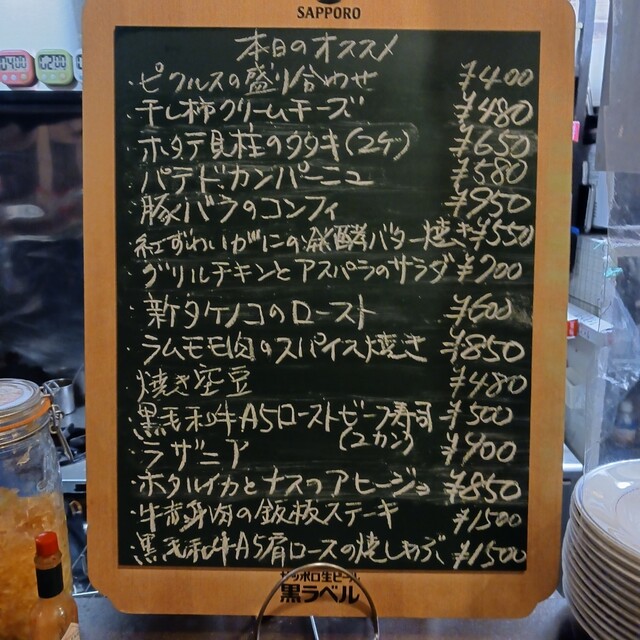 SAPPORO
本日のオススメ
・ピクルスの盛り合わせ ¥400
・干し柿クリームチーズ ¥480
・ホタテ貝柱のタタキ(2ケ) ¥650
・パテドカンパーニュ ¥580
・豚バラのコンフィ ¥950
・紅ずわいがにの発酵バター焼き ¥550
・グリルチキンとアスパラのサラダ ¥700
・新タケノコのロースト ¥600
・ラムモモ肉のスパイス焼き ¥850
・焼き空豆 ¥480
・黒毛和牛A5ローストビーフ寿司 ¥500
(2カン)
・ラザニア ¥900
・ホタルイカとナスのアヒージョ ¥850
・牛赤身肉の鉄板ステーキ ¥1500
・黒毛和牛A5肩ロースの焼しゃぶ ¥1500
サッポロ生ビール
黒ラベル